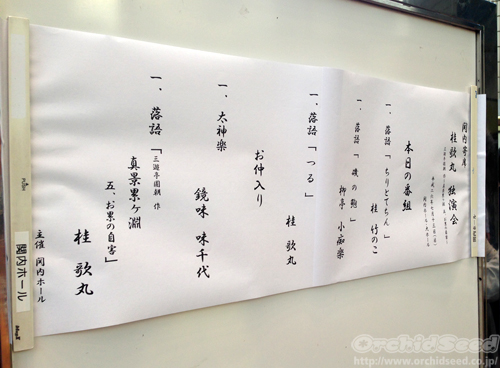 関内寄席
桂歌丸 独演会
本日の番組
一、落語「ちりとてちん」 桂 竹のこ
一、落語「磯の鮑」 柳亭 小痴楽
一、落語「つる」 桂 歌丸
お仲入り
一、太神楽 鏡味 味千代
一、落語「三遊亭圓朝 作
真景累ヶ淵
五、お累の自害」
桂 歌丸
主催 関内ホール
関内ホール
OrchidSeed
http://www.orchidseed.co.jp/